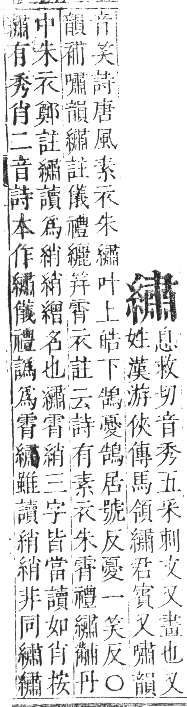 繡
息救切音秀五采刺文又畫也又
姓漢游俠傳馬領繡君賓又嘯韻
音笑詩唐風素衣朱繡叶上皓下鵠憂鵠居號反憂一笑反〇
韻補嘯韻繡註儀禮纚笄霄衣註云詩有素衣朱霄禮繡黼丹
中朱衣鄭註繡讀爲綃綃繒名也繡霄綃三字皆當讀如肖按
繡有秀肖二音詩本作繡儀禮譌爲霄繡雖讀綃綃非同繡